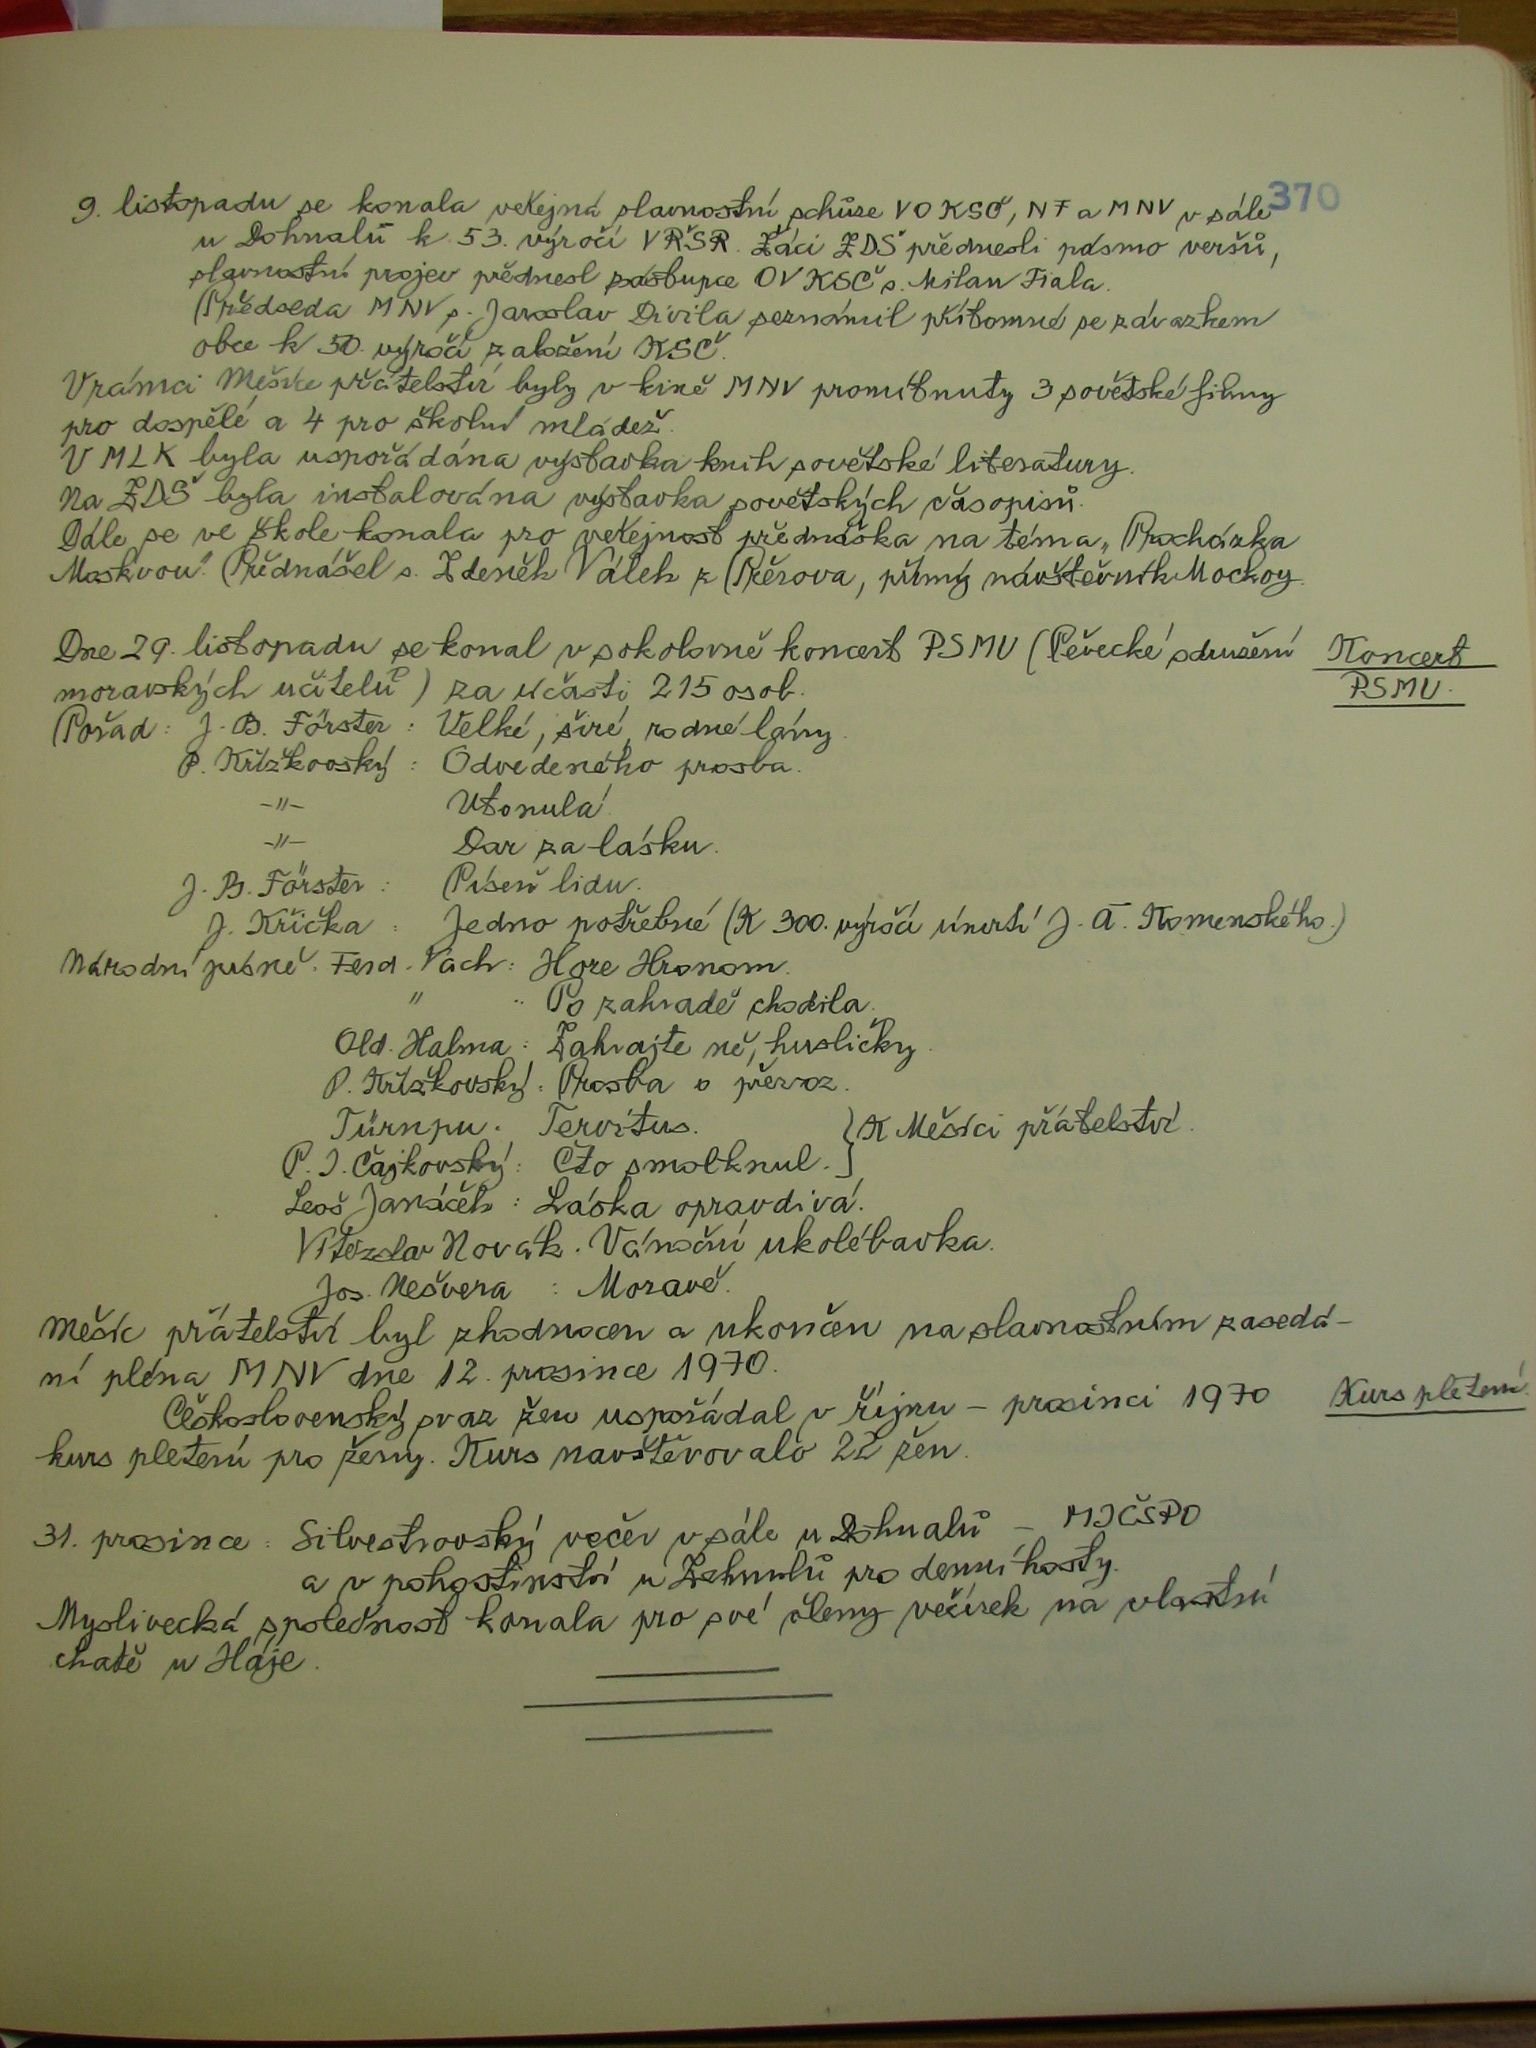 370
9. listopadu se konala veřejná slavnostní schůze VO KSČ, NF a MNV v sále
u Dohnalů k 53. výročí VŘSR. Žáci ZDŠ přednesli pásmo veršů,
slavnostní projev přednesl zástupce OV KSČ s. Milan Fiala.
Předseda MNV s. Jaroslav Divila seznámil přítomné se závazkem
obce k 50. výročí založení KSČ.
V rámci Měsíce přátelství byly v kině MNV promítnuty 3 sovětské filmy
pro dospělé a 4 pro školní mládež.
V MLK byla uspořádána výstavka knih sovětské literatury.
Na ZDŠ byla instalována výstavka sovětských časopisů.
Dále se ve škole konala pro veřejnost přednáška na téma „Procházka
Moskvou". Přednášel s. Zdeněk Válek z Přerova, přímý návštěvník Mockoy.
Dne 29. listopadu se konal v sokolovně koncert PSMU (Pěvecké sdružení
moravských učitelů) za účasti 215 osob.
Koncert
PSMU.
Pořad: J. B. Förster: Velké, širé, rodné lány.
P. Křížkovský: Odvedeného prosba.
-"- Utonulá
-"- Dar za lásku.
J. B. Förster: Píseň lidu.
J. Křička: Jedno potřebné (K 300. výročí úmrtí J. A. Komenského.)
Národní písně. Ferd. Vach: Hore Hronom.
" " Po zahradě chodila.
Old. Halma: Zahrajte ně, husličky.
P. Křížkovský: Prosba o převoz.
Türnpu. Tervitus. } K Měsíci přátelství.
P. I. Čajkovský: Čto smolknul.
Leoš Janáček: Láska opravdivá.
Vítězslav Novák. Vánoční ukolébavka.
Jos. Nešvera: Moravě.
Měsíc přátelství byl zhodnocen a ukončen na slavnostním zasedá-
ní pléna MNV dne 12. prosince 1970.
Československý svaz žen uspořádal v říjnu - prosinci 1970
Kurs pletení.
kurs pletení pro ženy. Kurs navštěvovalo 22 žen.
31. prosince: Silvestrovský večer v sále u Dohnalů - MJČSPO
a v pohostinství u Zehnulů pro denní hosty.
Myslivecká společnost konala pro své členy večírek na vlastní
chatě u Háje.